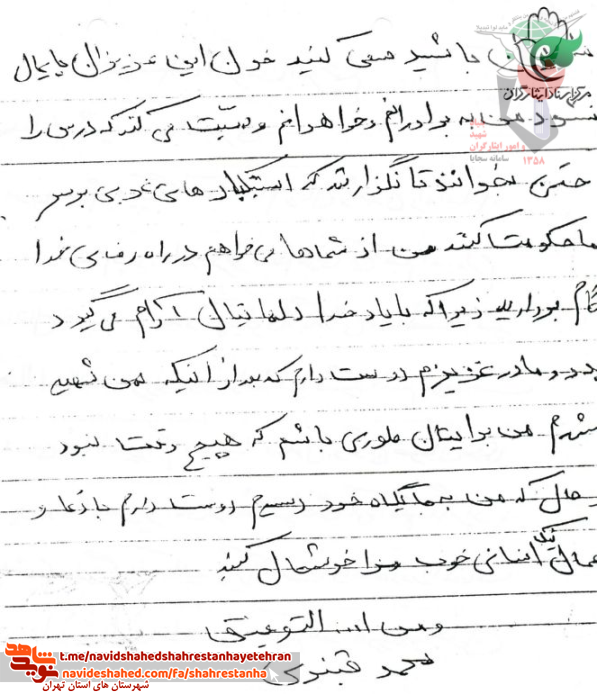 باشید سعی کنید خون این عزیزان پایمال
نسود من به برادرانم و خواهرانم وصیت می کنم که درس را
حتمن بخوانند تا نگذارند که استکبار های غربی برسر
ما حکومت کنند من از شماها می خواهم در راه رضای خدا
گام بردارید زیرا که با یاد خدا دلهایتان آرام می گیرد
پدر و مادر عزیزم دوست دارم که بعد از انیکه من شهید
شدم من برایتان طوری باشم که هیچ وقت نبود
حال که من به جایگاه خود رسیدم دوست دارم با دعا و
اعمال نیک انسانی خوب مرا خوشحال کنید
و من الله التوفیق
محمد قنبری
مرکز اسناد ایثارگران
شهید
و امور ایثارگران
سامانه سجایا
۱۳۵۸
نوید شاهد
t.me/navidshahedshahrestanhayetehran
navideshahed.com/fa/shahrestanha
شهرستان های استان تهران